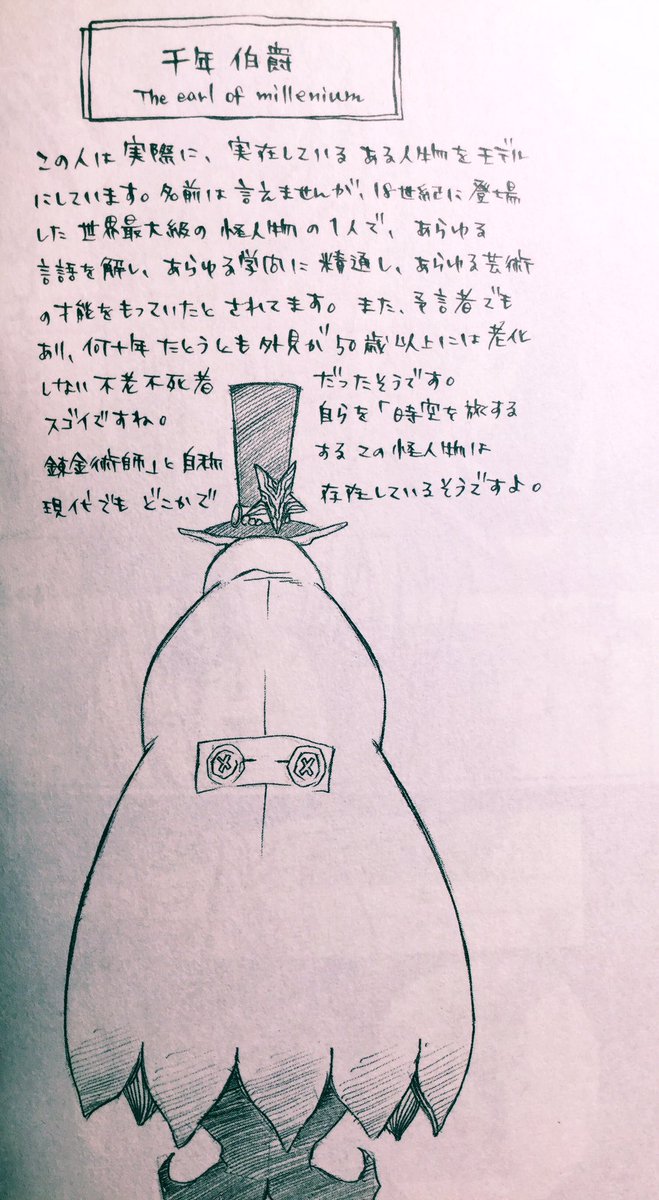 千年 伯爵
The earl of millenium
この人は実際に、実在している ある人物をモデル
にしています。名前は言えませんが、18世紀に登場
した世界最大級の怪人物の1人で、あらゆる
言語を解し、あらゆる学問に精通し、あらゆる芸術
の才能をもっていたとされてます。また、予言者でも
あり、何十年たとうとも外見が50歳以上には老化
しない不老不死者 だったそうです。
スゴイですね。 自らを「時空を旅する
錬金術師」と自称 するこの怪人物は
現代でもどこかで 存在しているそうですよ。